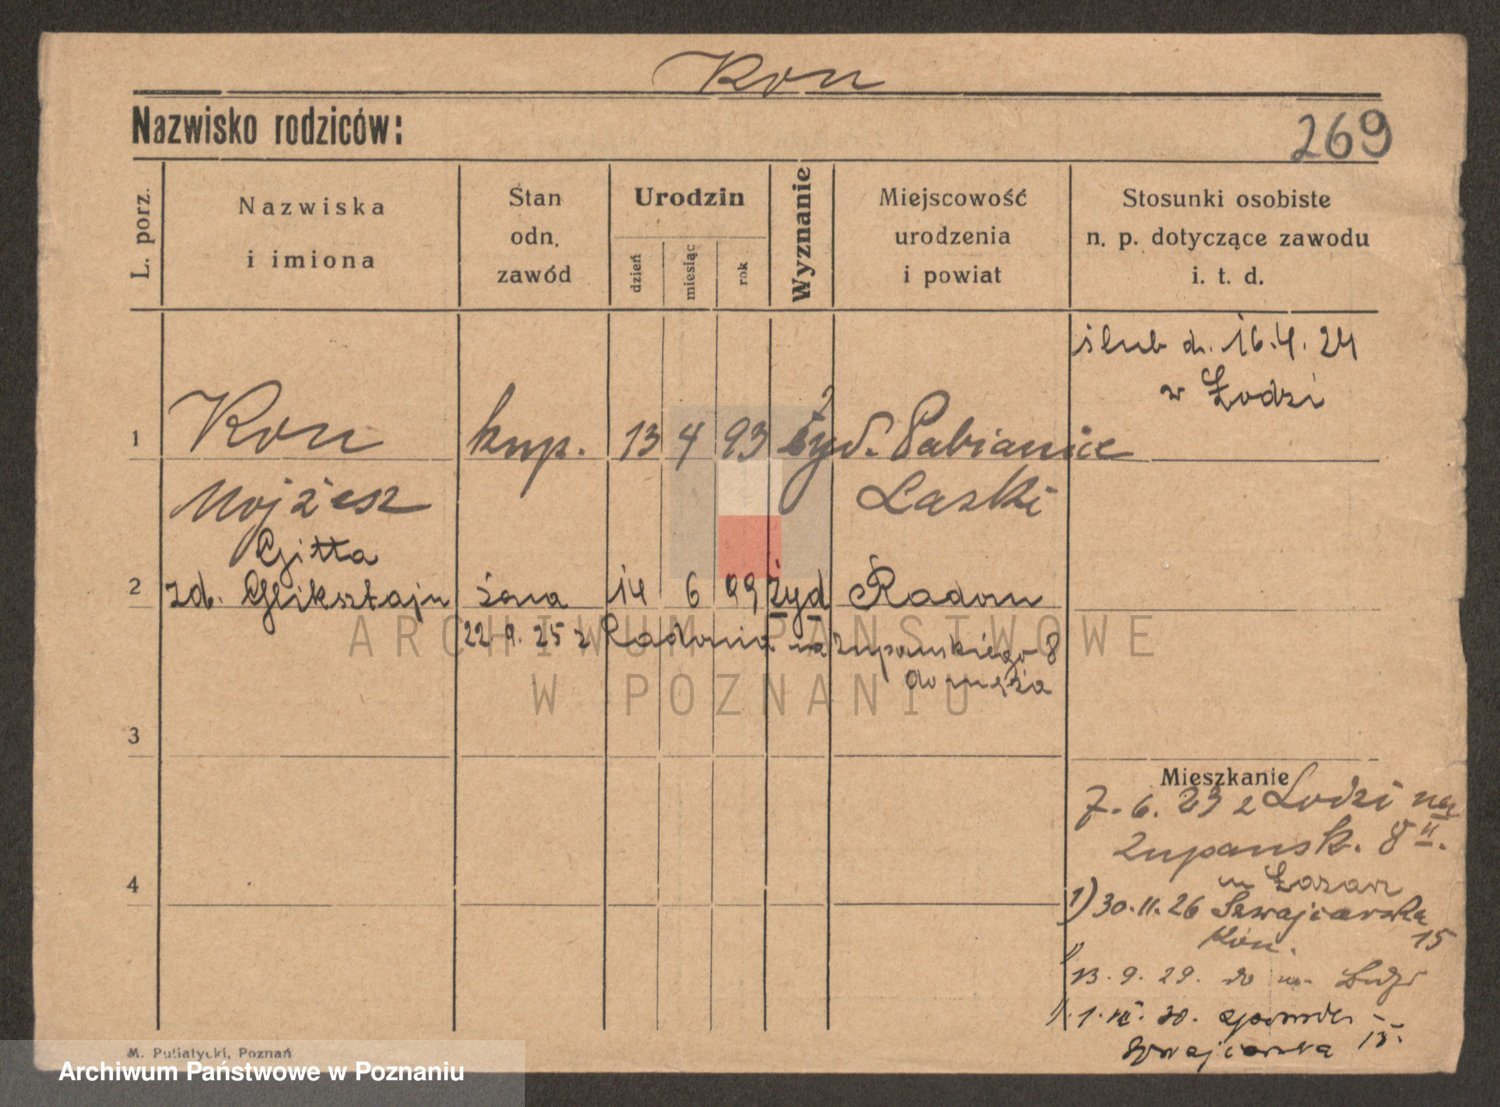 Kon
Nazwisko rodziców:
269
L. porz.
Nazwiska
i imiona
Stan
odn.
zawód
Urodzin
dzień
miesiąc
rok
Wyznanie
Miejscowość
urodzenia
i powiat
Stosunki osobiste
n. p. dotyczące zawodu
i. t. d.
ślub dn. 16.4.24
w Łodzi
1 Kon kup. 13 4 93 żyd. Pabianice
Mojżesz Laski
Gitta
2 zd. Gliksztajn żona 14 6 99 żyd Radom
22 9. 25 z Radomia na Żupańskiego 8
do męża
ARCHIWUM PAŃSTWOWE
W POZNANIU
3
Mieszkanie
7. 6. 23 z Łodzi na
Żupansk. 8 II.
4
m Łazarz
1) 30.11.26 Szwajcarska
15
Kon.
13. 9. 29. do m. Łodzi
15.
Szwajcarska
M. Putiatycki, Poznań
Archiwum Państwowe w Poznaniu